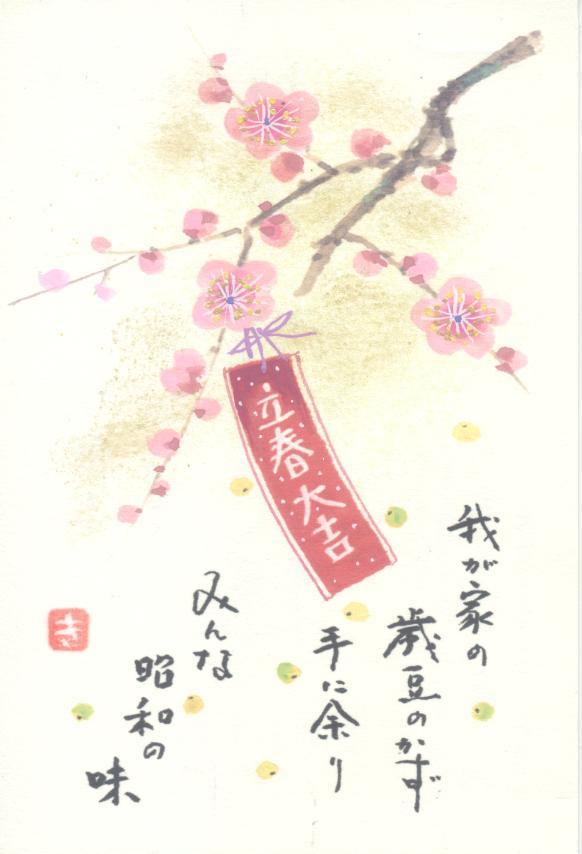 立春大吉
我が家の
歳豆のかず
手に余り
みんな
昭和の
味